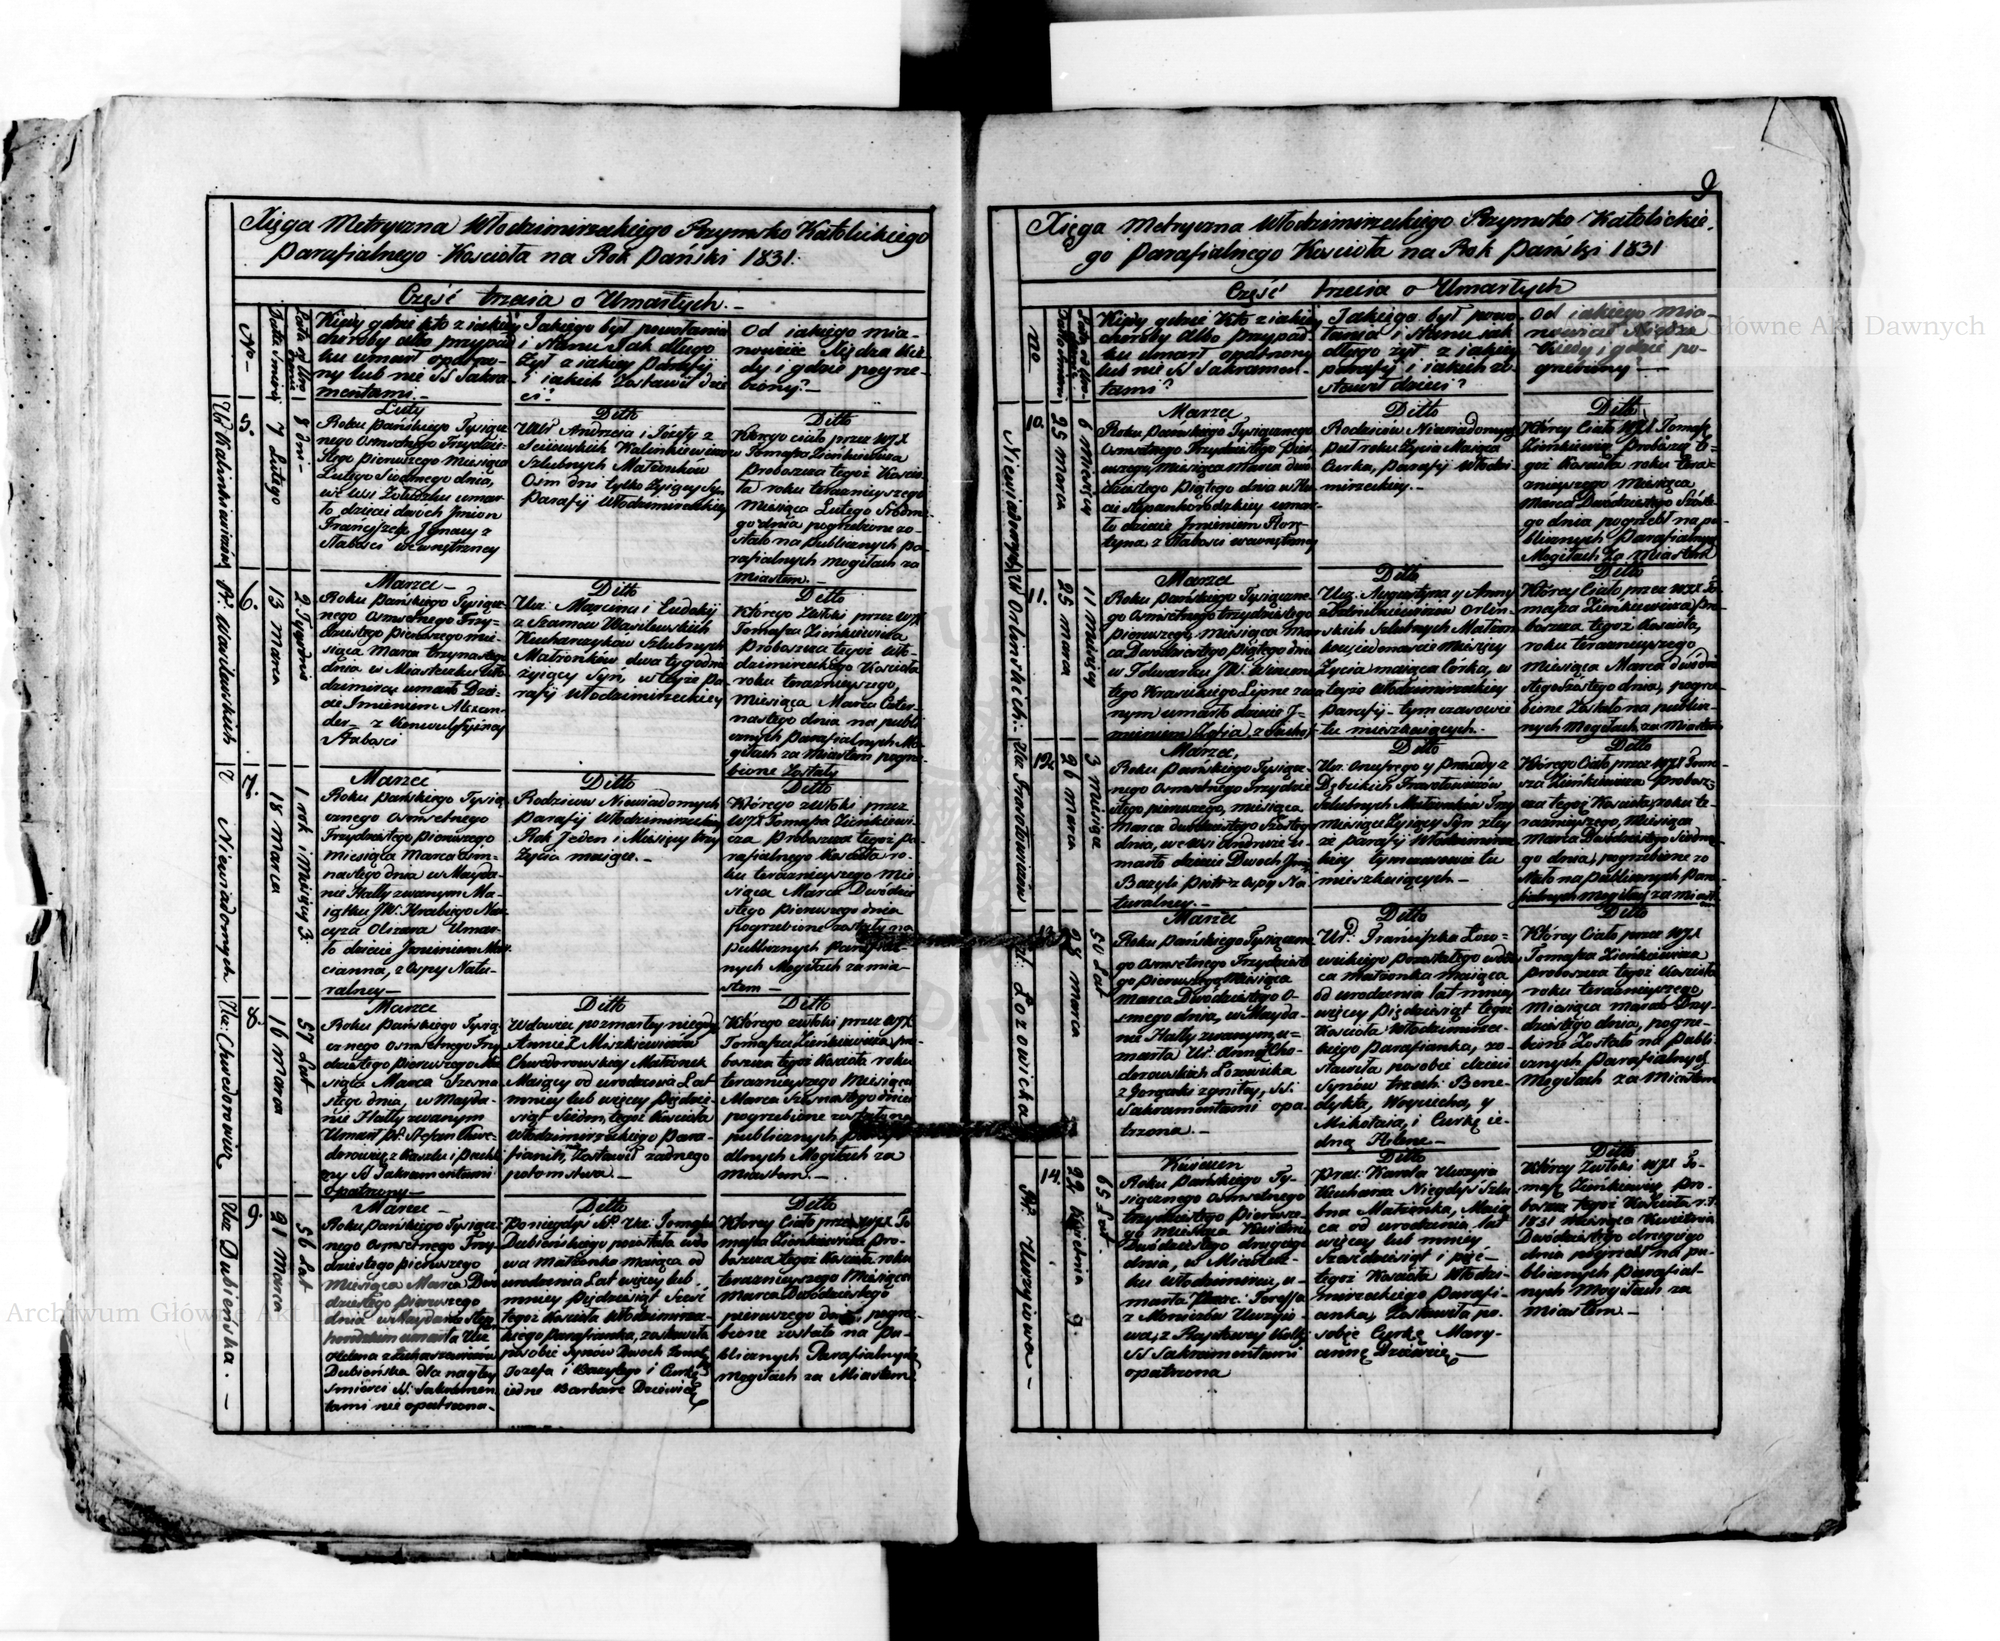 Xięga Metryczna Włodzimirzskiego Rzymsko Katolickiego
Parafialnego Kościoła na Rok Pański 1831.
Część trzecia o Umarłych.
No
Data Śmierci
Kiedy gdzie kto z iakiey
choroby albo przypad
ku umarł opatrzo-
ny lub nie SS Sakra-
mentami.
Jakiego był powołania
i stanu Jak długo
żył z iakiey Parafij
i iakich zostawił dzie
ci?
Od iakiego mia-
nowicie Xiędza kie-
dy i gdzie pogrze-
biony?
5.
7 Lutego
8 dni
Luty
Roku Pańskiego Tysiącz-
nego Osmsetnego Trzydzie-
stego pierwszego Miesiąca
Lutego Siódmego dnia,
to dzieci dwóch Imion
Franciszek Ignacy z
słabości wewnętrzney
Ditto
Ur Andrzeia i Józefy z
Kalinkiewiczów
Szlubnych Małżonków
Osm dni tylko żyjący Syn
Parafij Włodzimirskiey
Ditto
Którego ciało przez WJX
Tomasza Zienkiewicza
Proboszcza tegoż Kościo
ła roku teraznieyszego
Miesiąca Lutego Ósme-
go dnia pogrzebione zo-
stało na Publicznych Pa-
rafialnych Mogiłach za
miastem
6.
13 Marca
2 Tygodnie
Marzec
Roku Pańskiego Tysiącz-
nego Osmsetnego Trzy-
dziestego pierwszego mie-
siąca Marca trzynastego
dnia w Miasteczku Wło
dzimirzu umarło Dzie-
cie Imieniem Alexan-
der z Konwulsyiney
słabości
Ditto
Ur: Marcina i Ludwiki
z Szamów Wasilewskich
Kucharzyków Szlubnych
Małżonków dwa tygodnie
żyjący Syn, w teyże Pa-
rafij Włodzimirzskiey
Ditto
Którego zwłoki przez WJX
Tomasza Zienkiewicza
Proboszcza tegoż Wło-
dzimirzskiego Kościoła
roku teraznieyszego,
Miesiąca Marca Czter-
nastego dnia na publi
cznych parafialnych Mo-
giłach za miastem pogrze-
bione zostały
7.
Niewiadomych
18 Marca
1 rok i Miesięcy 3
Marzec
Roku Pańskiego Tysią-
cznego Osmsetnego
Trzydziestego pierwszego
miesiąca Marca Osm-
nastego dnia w Mayda-
nie Hatty zwanym Ma-
iątku JW: Hrabiego Nar-
cyza Olizara Umar-
ło dziecie Imieniem Mar-
cianna, z Ospy Natu-
ralney
Ditto
Rodziców Niewiadomych
Parafij Włodzimirzskiey
Rok Jeden i Miesięcy trzy
życia maiące.
Ditto
Którego zwłoki przez
WJX Tomasza Zienkiewi-
cza Proboszcza tegoż Pa-
rafialnego Kościoła ro-
ku teraznieyszego Mie-
siąca Marca Dwódzie
stego pierwszego dnia
pogrzebione zostały na
publicznych Parafial-
nych Mogiłach za mia-
stem
8.
16 Marca
57 Lat
Marzec
Roku Pańskiego Tysią-
cznego Osmsetnego Trzy
dziestego pierwszego Mie
siąca Marca Szesna
stego dnia, w Mayda-
nie Hatty zwanym
Umarł Sz: Stefan Chwe-
dorowicz z Kaszlu i puchli
ny SS Sakramentami
opatrzony
Ditto
Wdowiec po zmarłey niegdy
Annie z Miszkiewiczów
Chwedorowskiey Małżonce
Maiący od urodzenia Lat
mniey lub więcey Pięćdzie-
siąt Siedm, tegoż Kościoła
Włodzimirzskiego Para-
fianin, zostawił żadnego
potomstwa.
Ditto
Którego zwłoki przez WJX
Tomasza Zienkiewicza pro
boszcza tegoż Kościoła roku
teraznieyszego Miesiąca
Marca Szesnastego dnia
pogrzebione zostały na
publicznych Parafi-
alnych Mogiłach za
miastem.
9.
Dubieńska.
21 Marca
56 Lat
Marzec
Roku Pańskiego Tysiącz-
nego Osmsetnego Trzy-
dziestego pierwszego
Miesiąca Marca Dwu
dziestego pierwszego
dnia w Maydanie
umarła Ur
Helena z Łukaszewiczów
Dubieńska dla nagłey
śmierci SS. Sakramen-
tami nie opatrzona
Ditto
Poniegdyś Sz: Ur: Tomaszu
Dubieńskiego pozostała wdo
wa Małżonka maiąca od
urodzenia Lat więcey lub
mniey Pięćdziesiąt Sześć
tegoż Kościoła Włodzimirzs-
kiego Parafianka, zostawiła
po sobie Synów Dwóch
Józefa i Bazylego i Curkę
iedne Barbarę Dziewicę
Ditto
Którey Ciało przez WJX To-
masza Zienkiewicza Pro-
boszcza tegoż Kościoła roku
teraznieyszego Miesiąca
Marca Dwódziestego
pierwszego dnia pogrze-
bione zostało na Pu-
blicznych Parafialnych
Mogiłach za Miastem
9
Xięga Metryczna Włodzimirzskiego Rzymsko Katolickie-
go Parafialnego Kościoła na Rok Pański 1831
Część trzecia o Umarłych
Kiedy gdzie Kto z iakiey
choroby Albo Przypad-
ku umarł opatrzony
lub nie SS Sakramen-
tami?
Jakiego był powo-
łania i Stanu jak
długo żył z iakiey
parafij i iakich zo-
stawił dzieci?
Od iakiego mia-
nowicie Xiędza
Kiedy i gdzie po-
grzebiony
10.
Niewiadomych
25 Marca
6 Miesięcy
Marzec
Roku Pańskiego Tysiącznego
Osmsetnego Trzydziestego Pier
wszego, Miesiąca Marca dwu
dziestego piątego dnia w Hu
cie Stepankorodzkiey umar-
ło dziecie Imieniem
z słabości wewnętrzney
Ditto
Rodziców Niewiadomych
Puł roku Życia Maiąca
Curka, Parafij Włodzi
mirzskiey.
Ditto
Którey Ciało WJX Tomasz
Zienkiewicz Proboszcz te-
goż Kościoła roku tera-
znieyszego Miesiąca
Marca Dwódziestego Szóste-
go dnia pogrzebł na pu-
blicznych Parafialnych
Mogiłach za Miastem
11.
Ur Orlinskich.
25 Marca
11 Miesięcy
Marzec
Roku Pańskiego Tysiączne-
go Osmsetnego trzydziestego
pierwszego, miesiąca Mar
ca Dwódziestego Piątego dnia
w Folwarku JW: Wincen
tego Krasickiego Lipne zwa
nym umarło dziecie I-
mieniem Zofia z Suchot
Ditto
Ur: Augustyna y Anny
z Kalinkiewiczów Orlin-
skich Szlubnych Małżon
ków jedenaście Miesięcy
Życia maiąca Córka, w
teyże Włodzimirzskiey
Parafij tymczasowie
tu mieszkaiących.
Ditto
Którey Ciało przez WJX To
masza Zienkiewicza Pro-
boszcza tegoż Kościoła,
roku teraznieyszego
Miesiąca Marca dwódzie
stego Szóstego dnia, pogrze
bione Zostało na publicz-
nych Mogiłach za Miastem
12.
26 Marca
3 Miesiące
Marzec
Roku Pańskiego Tysiącz-
nego Osmsetnego Trzydzie
stego pierwszego, miesiąca
Marca dwudziestego Szóstego
dnia, we wsi Andruze u-
marło dziecie Dwoch Imion
Bazyli Piotr z Ospy Na
turalney.
Ditto
Ur: Onufrego y
Dębickich
Szlubnych Małżonków Trzy
miesiące Żyjący Syn z tey
że parafij Włodzimirzs-
kiey tymczasowie tu
mieszkaiących
Ditto
Którego Ciało przez WJX Toma-
sza Zienkiewicza Probosz-
cza tegoż Kościoła, roku te-
raznieyszego, Miesiąca
Marca Dwódziestego Siódme-
go dnia, pogrzebione zo
stało na publicznych Para-
fialnych mogiłach za miast.
13.
Łozowicka
28 Marca
50 Lat
Marzec
Roku Pańskiego Tysiączne
go Osmsetnego Trzydzieste
go pierwszego Miesiąca
Marca Dwódziestego O-
smego dnia, w Mayda-
nie Hatty zwanym, u-
marła Ur: Anna z Cho-
dorowskich Łozowicka
z Gorączki zgniłey, SS.
Sakramentami opa-
trzona.
Ditto
Ur: Franciszka Łozo-
wickiego pozostałego wdow
ca małżonka maiąca
od urodzenia lat mniey
więcey pięćdziesiąt tegoż
Kościoła Włodzimirzs-
kiego Parafianka, zo-
stawiła po sobie dzieci
Synów trzech: Bene-
dykta, Woyciecha, y
Mikołaia, i Curkę ie-
dną Helenę
Ditto
Którey Ciało przez WJX
Tomasza Zienkiewicza
proboszcza tegoż Kościoła
roku teraznieyszego,
Miesiąca Marca Trzy-
dziestego dnia, pogrze-
bione Zostało na Publi-
cznych Parafialnych
Mogiłach za Miastem
14.
22 Kwietnia
65 Lat.
Kwiecień
Roku Pańskiego Ty-
siącznego Osmsetnego
trzydziestego pierwsze-
go miesiąca Kwietnia
Dwódziestego drugiego
dnia, w Miastecz-
ku Włodzimirzu, u-
marła Teressa
SS Sakramentami
opatrzona
Ditto
Prac: Karola
Kucharza Niegdyś Szlu
bna Małżonka, Maią
ca od urodzenia lat
więcey lub mniey
Sześćdziesiąt i pięć
tegoż Kościoła Włodzi-
mirzskiego Parafi-
anka, Zostawiła po-
sobie Curkę Mary-
annę Dziewicę
Ditto
Którey Zwłoki WJX To-
masz Zienkiewicz Pro-
boszcz tegoż Kościoła r.t.
1831 Miesiąca Kwietnia
Dwódziestego drugiego
dnia pogrzebł na pu-
blicznych Parafial-
nych Mogiłach za
Miastem
Archiwum Główne Akt Dawnych